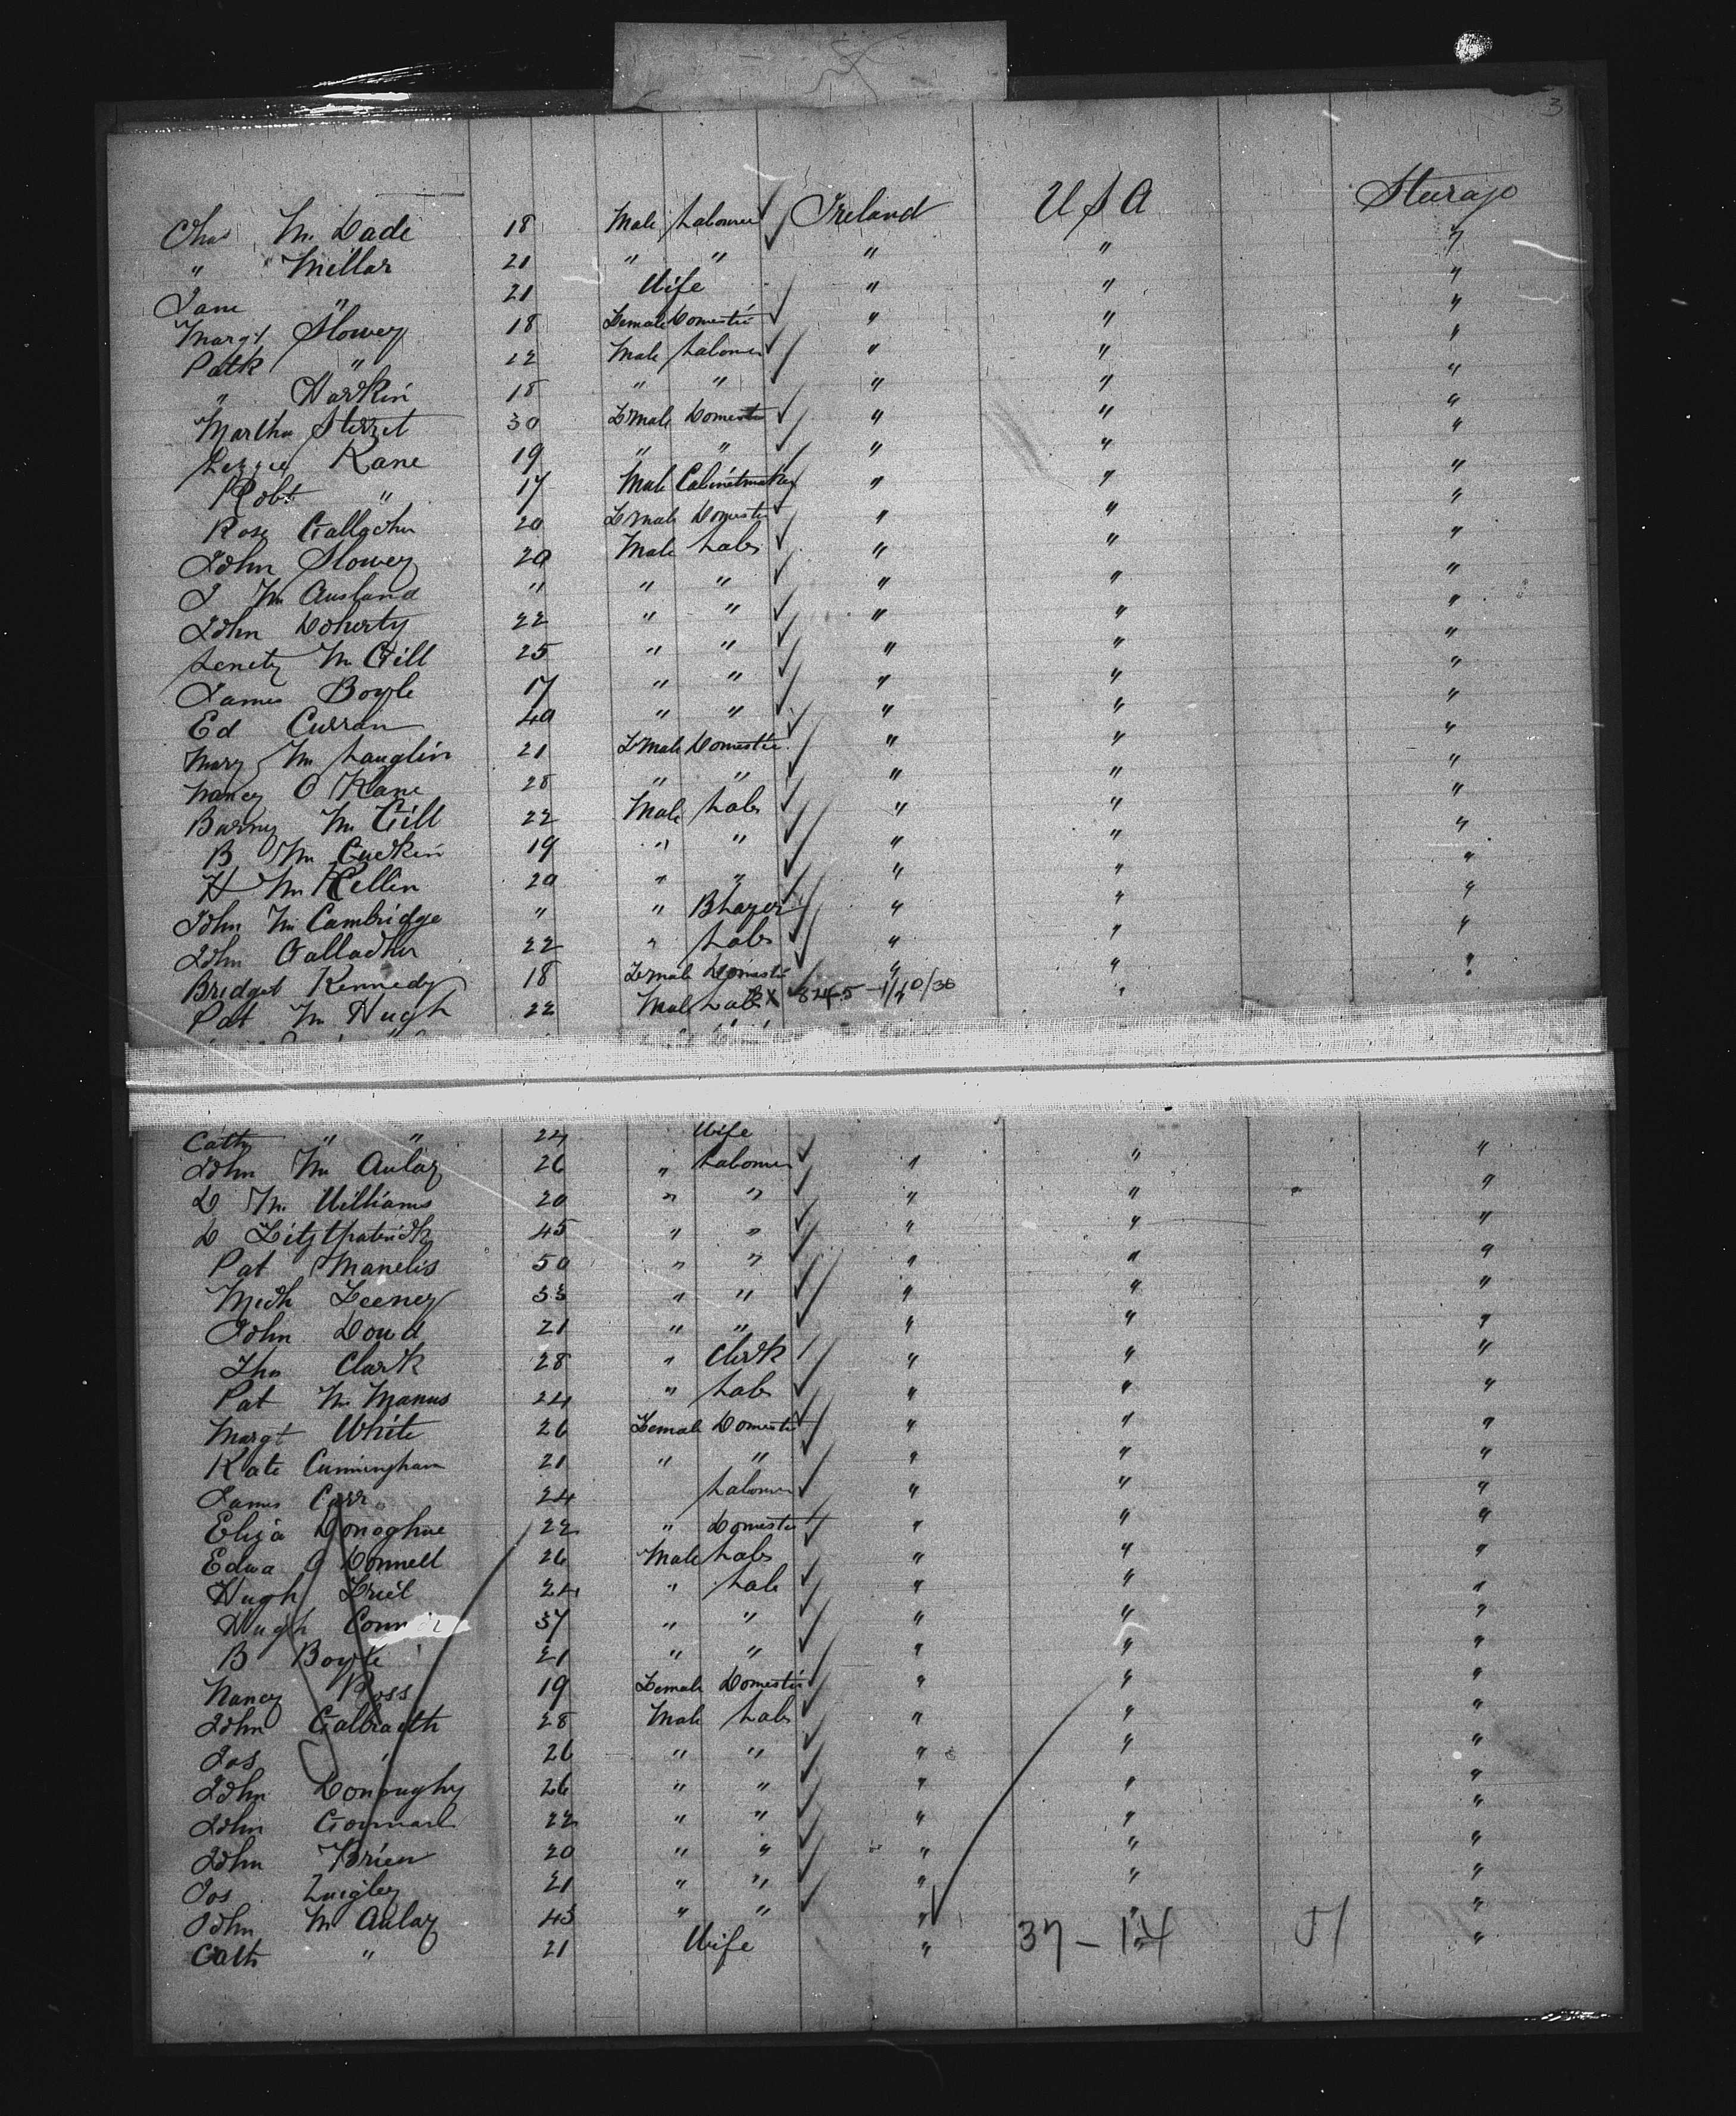 3
Chas Mc Dade 18 Male Labourer Ireland U S A Steerage
" Millar 21 " " " " "
Jane " 21 Wife " " "
Margt Slowey 18 Female Domestic " " "
Patk " 22 Male Labourer " " "
" Harkin 18 " " " " "
Martha Sterret 30 Female Domestic " " "
Lizzie Kane 19 " " " " "
Robt " 17 Male Cabinetmaker " " "
Rose Gallagher 20 Female Domestic " " "
John Slowey 20 Male Labr " " "
J Mc Ausland " " " " " "
John Doherty 22 " " " " "
Mc Gill 25 " " " " "
James Boyle 17 " " " " "
Ed Curran 40 " " " " "
Mary Mc Lauglin 21 Female Domestic " " "
Nancy O Kane 28 " " " " "
Barny Mc Gill 22 Male Labr " " "
B Mc Guckin 19 " " " " "
H Mc Kellin 20 " " " " "
John Mc Cambridge " " " " "
John Gallagher 22 " Labr " " "
Bridget Kennedy 18 Female Domestic " " "
Pat Mc Hugh 22 Male Labr "
Cath " " 24 Wife
John Mc Aulay 26 " Labourer " " "
D Mc Williams 20 " " " " "
D Fitzpatrick 45 " " " " "
Pat Manelis 50 " " " " "
Mich Feeney 33 " " " " "
John Doud 21 " " " " "
Thos Clark 28 " Clerk " " "
Pat Mc Manus 24 " Labr " " "
Margt White 26 Female Domestic " " "
Kate Cunningham 21 " " " " "
James Carr 24 Labourer " " "
Eliza Donoghue 22 " Domestic " " "
Edwd O Donnell 26 Male Labr " " "
Hugh Friel 24 " Lab " " "
Hugh 37 " " " " "
B Boyle 21 " " " " "
Nancy Ross 19 Female Domestic " " "
John Galbraith 28 Male Labr " " "
Jas " 26 " " " " "
John Donnaughy 26 " " " " "
John Gormand 22 " " " " "
John Brien 20 " " " " "
Jos Quigley 21 " " " " "
John Mc Aulay 45 " " " " "
Cath " 21 Wife " 37 – 14 "